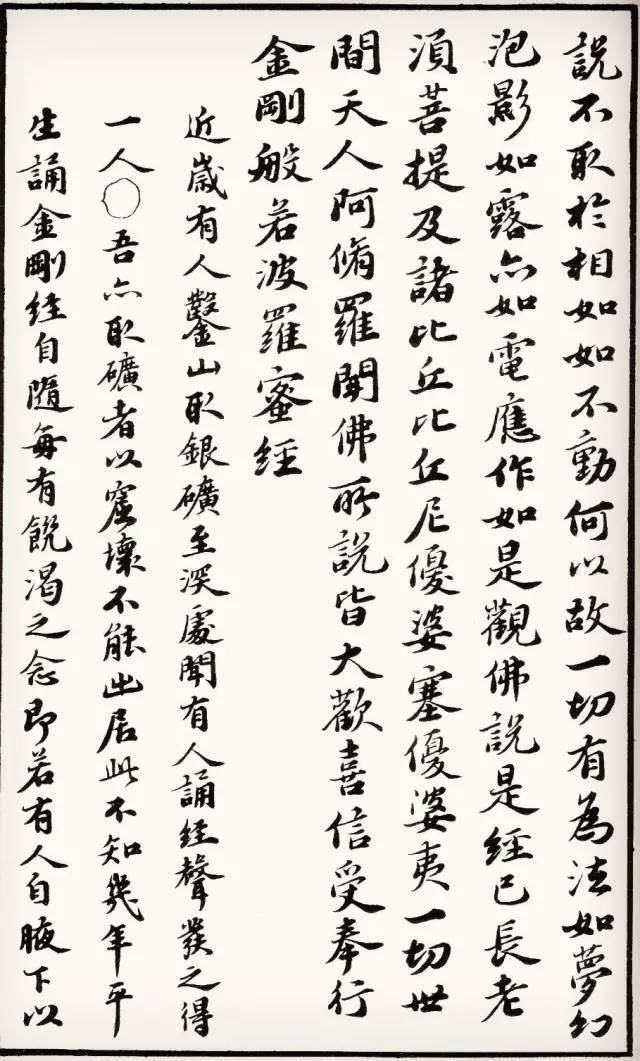 說不取於相如如不動何以故一切有為法如夢幻
泡影如露亦如電應作如是觀佛說是經已長老
須菩提及諸比丘比丘尼優婆塞優婆夷一切世
間天人阿脩羅聞佛所說皆大歡喜信受奉行
金剛般若波羅蜜經
近歲有人鑿山取銀礦至深處聞有人誦經聲發之得
一人〇吾亦取礦者以窟壞不能出居此不知幾年平
生誦金剛經自隨每有飢渴之念即若有人自腋下以